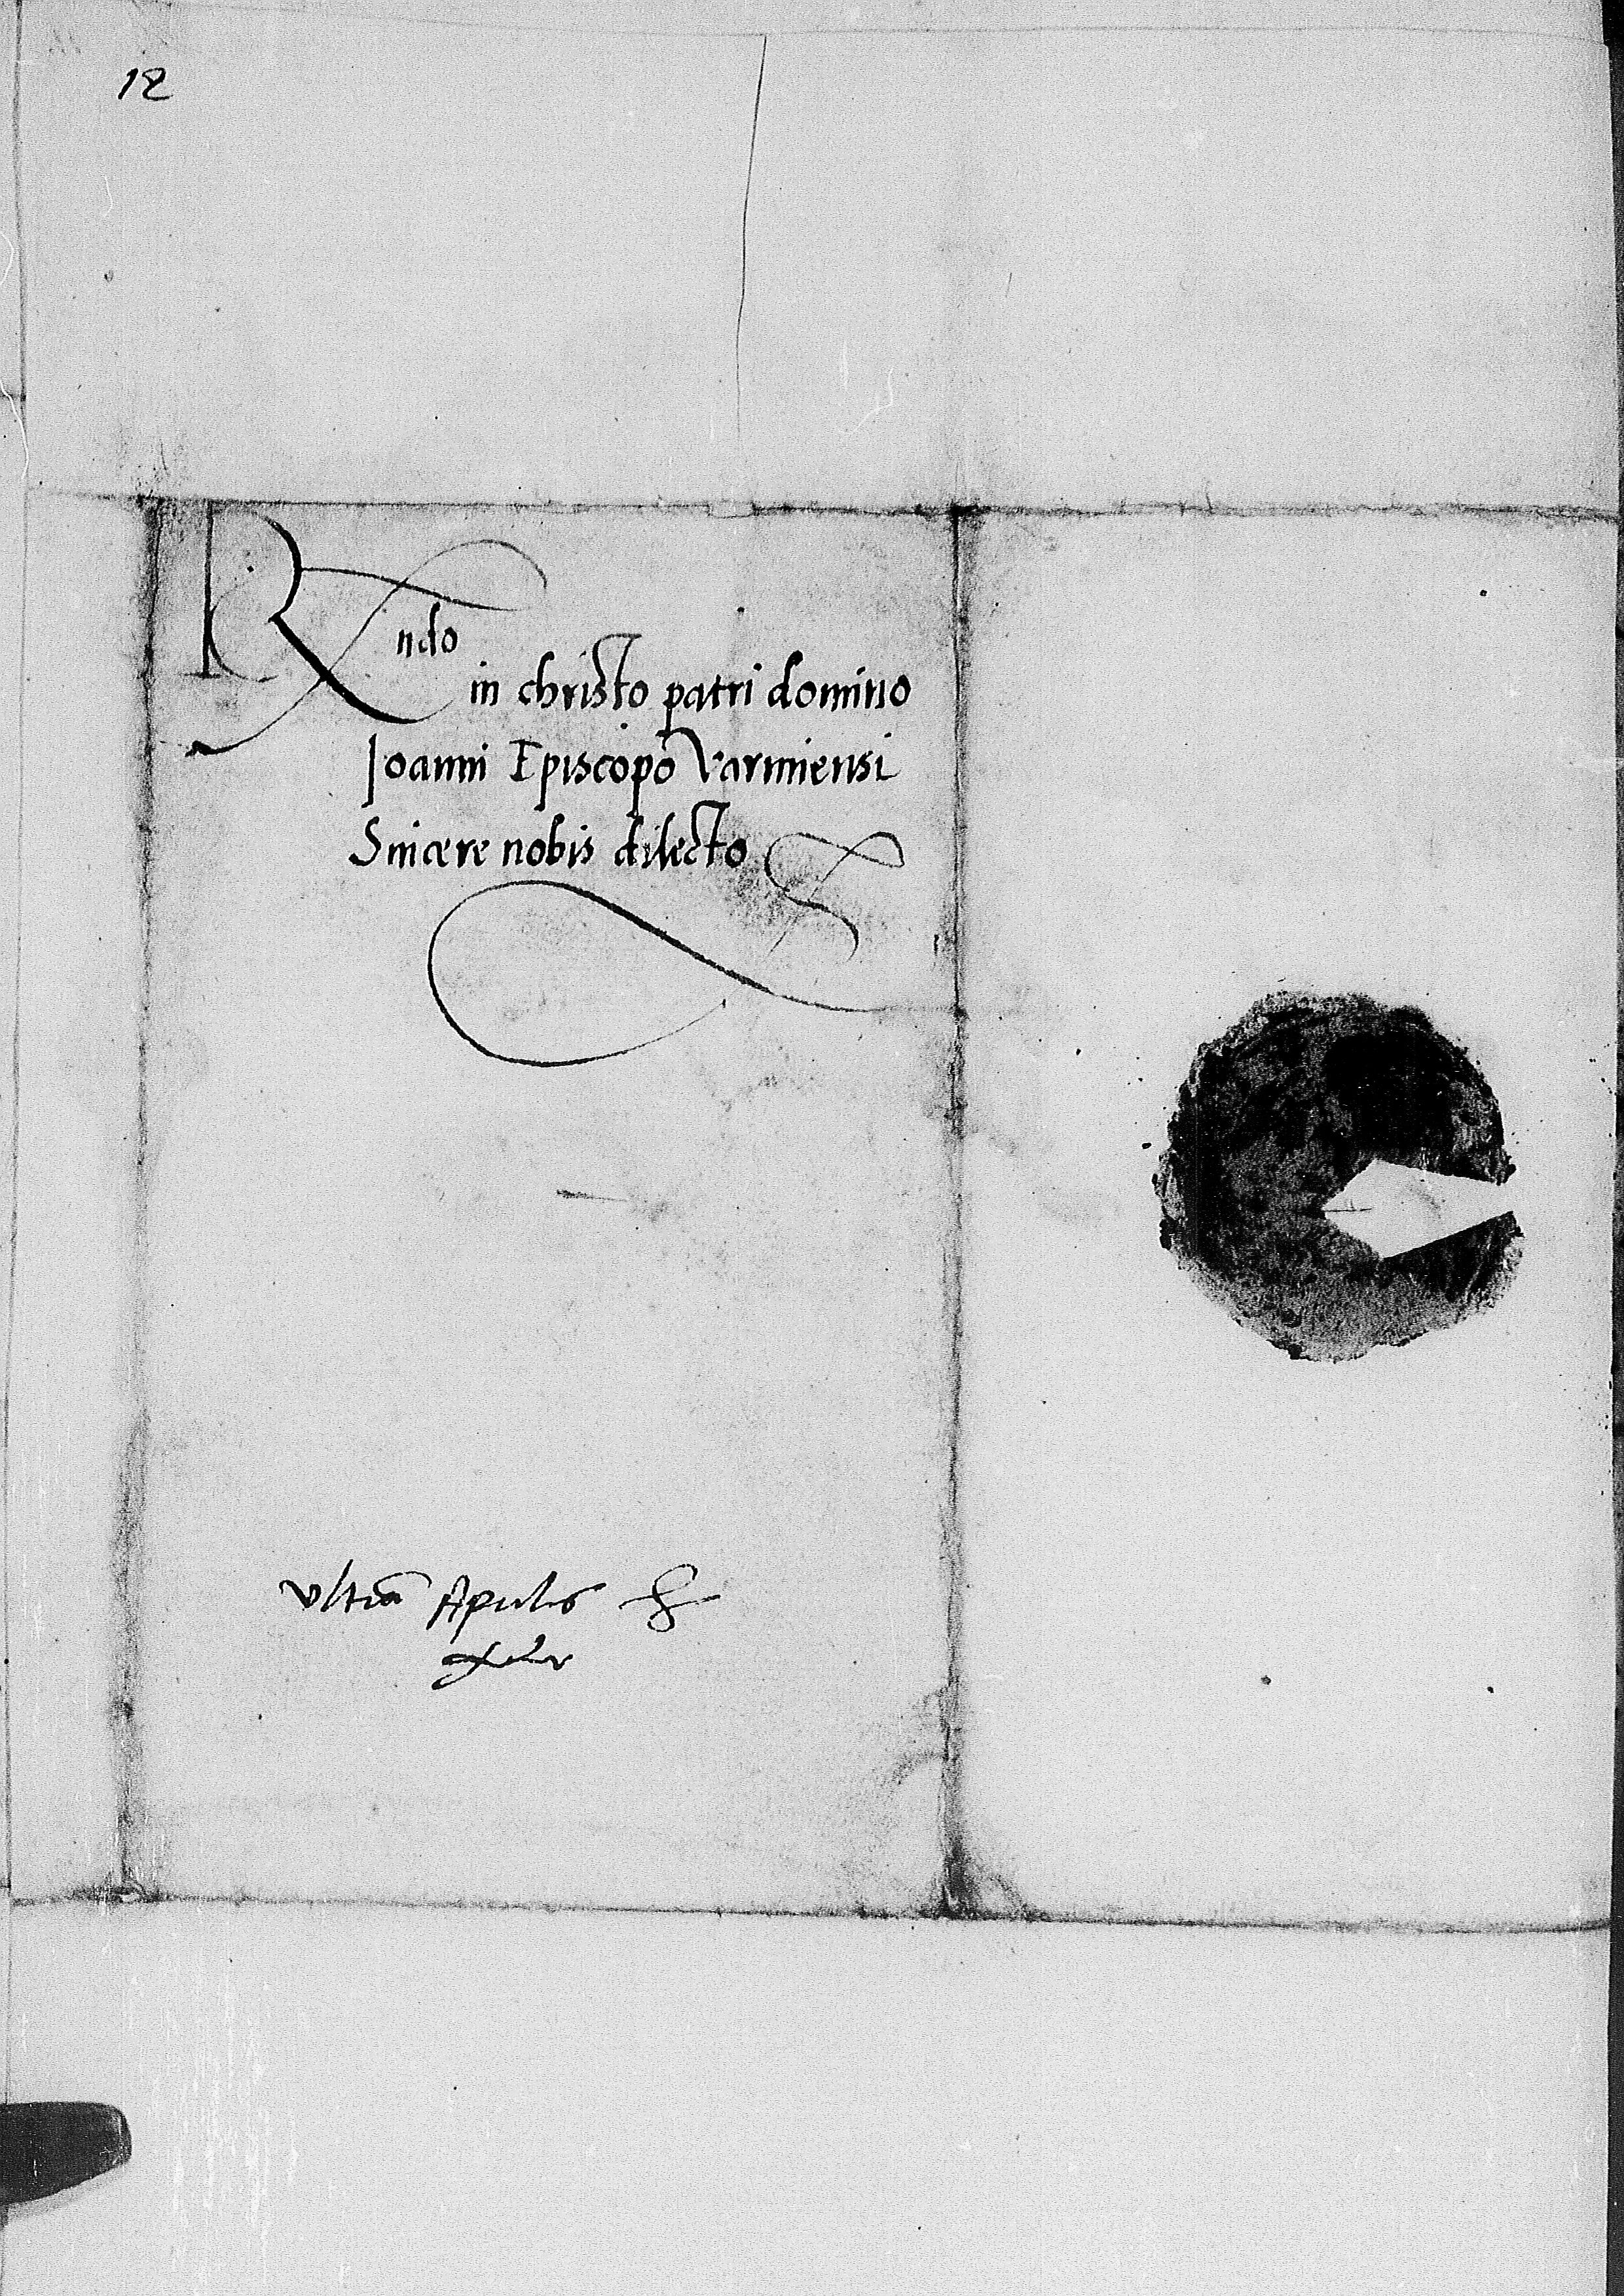 12
Rndo
in christo patri domino
Ioanni Episcopo Varmiensi
Sincere nobis dilecto
Vltiā Aprilis